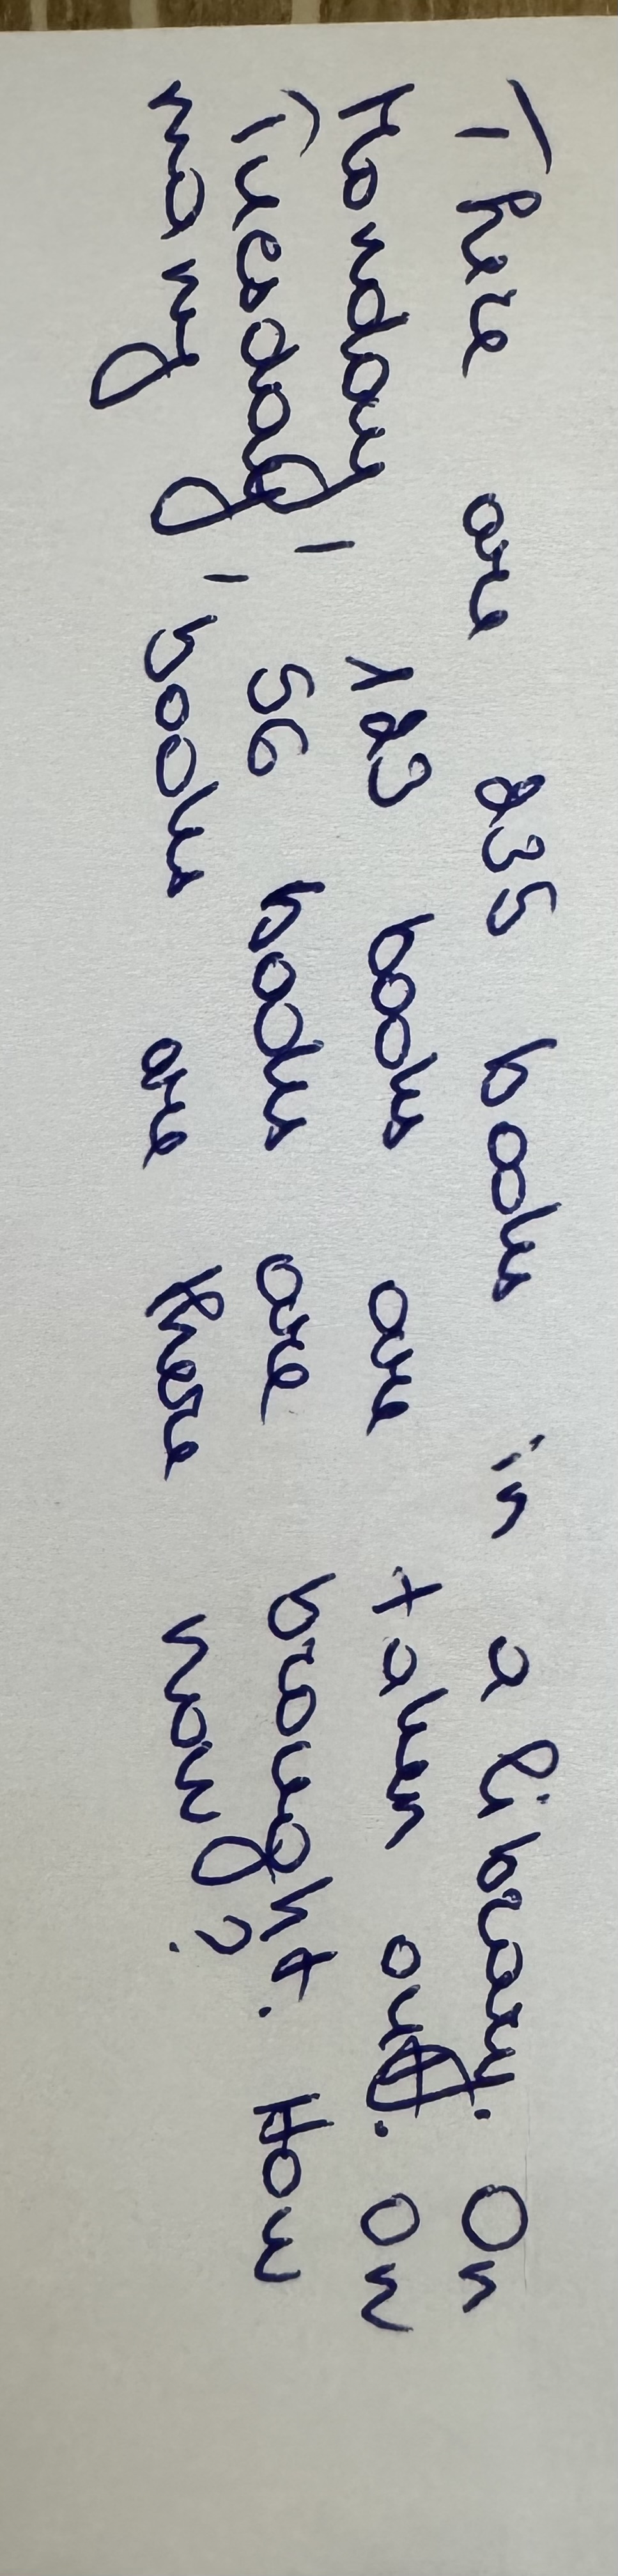 There are 235 books in a library. On
Monday, 123 books are taken out. On
Tuesday, 56 books are brought. How
many books are there now?